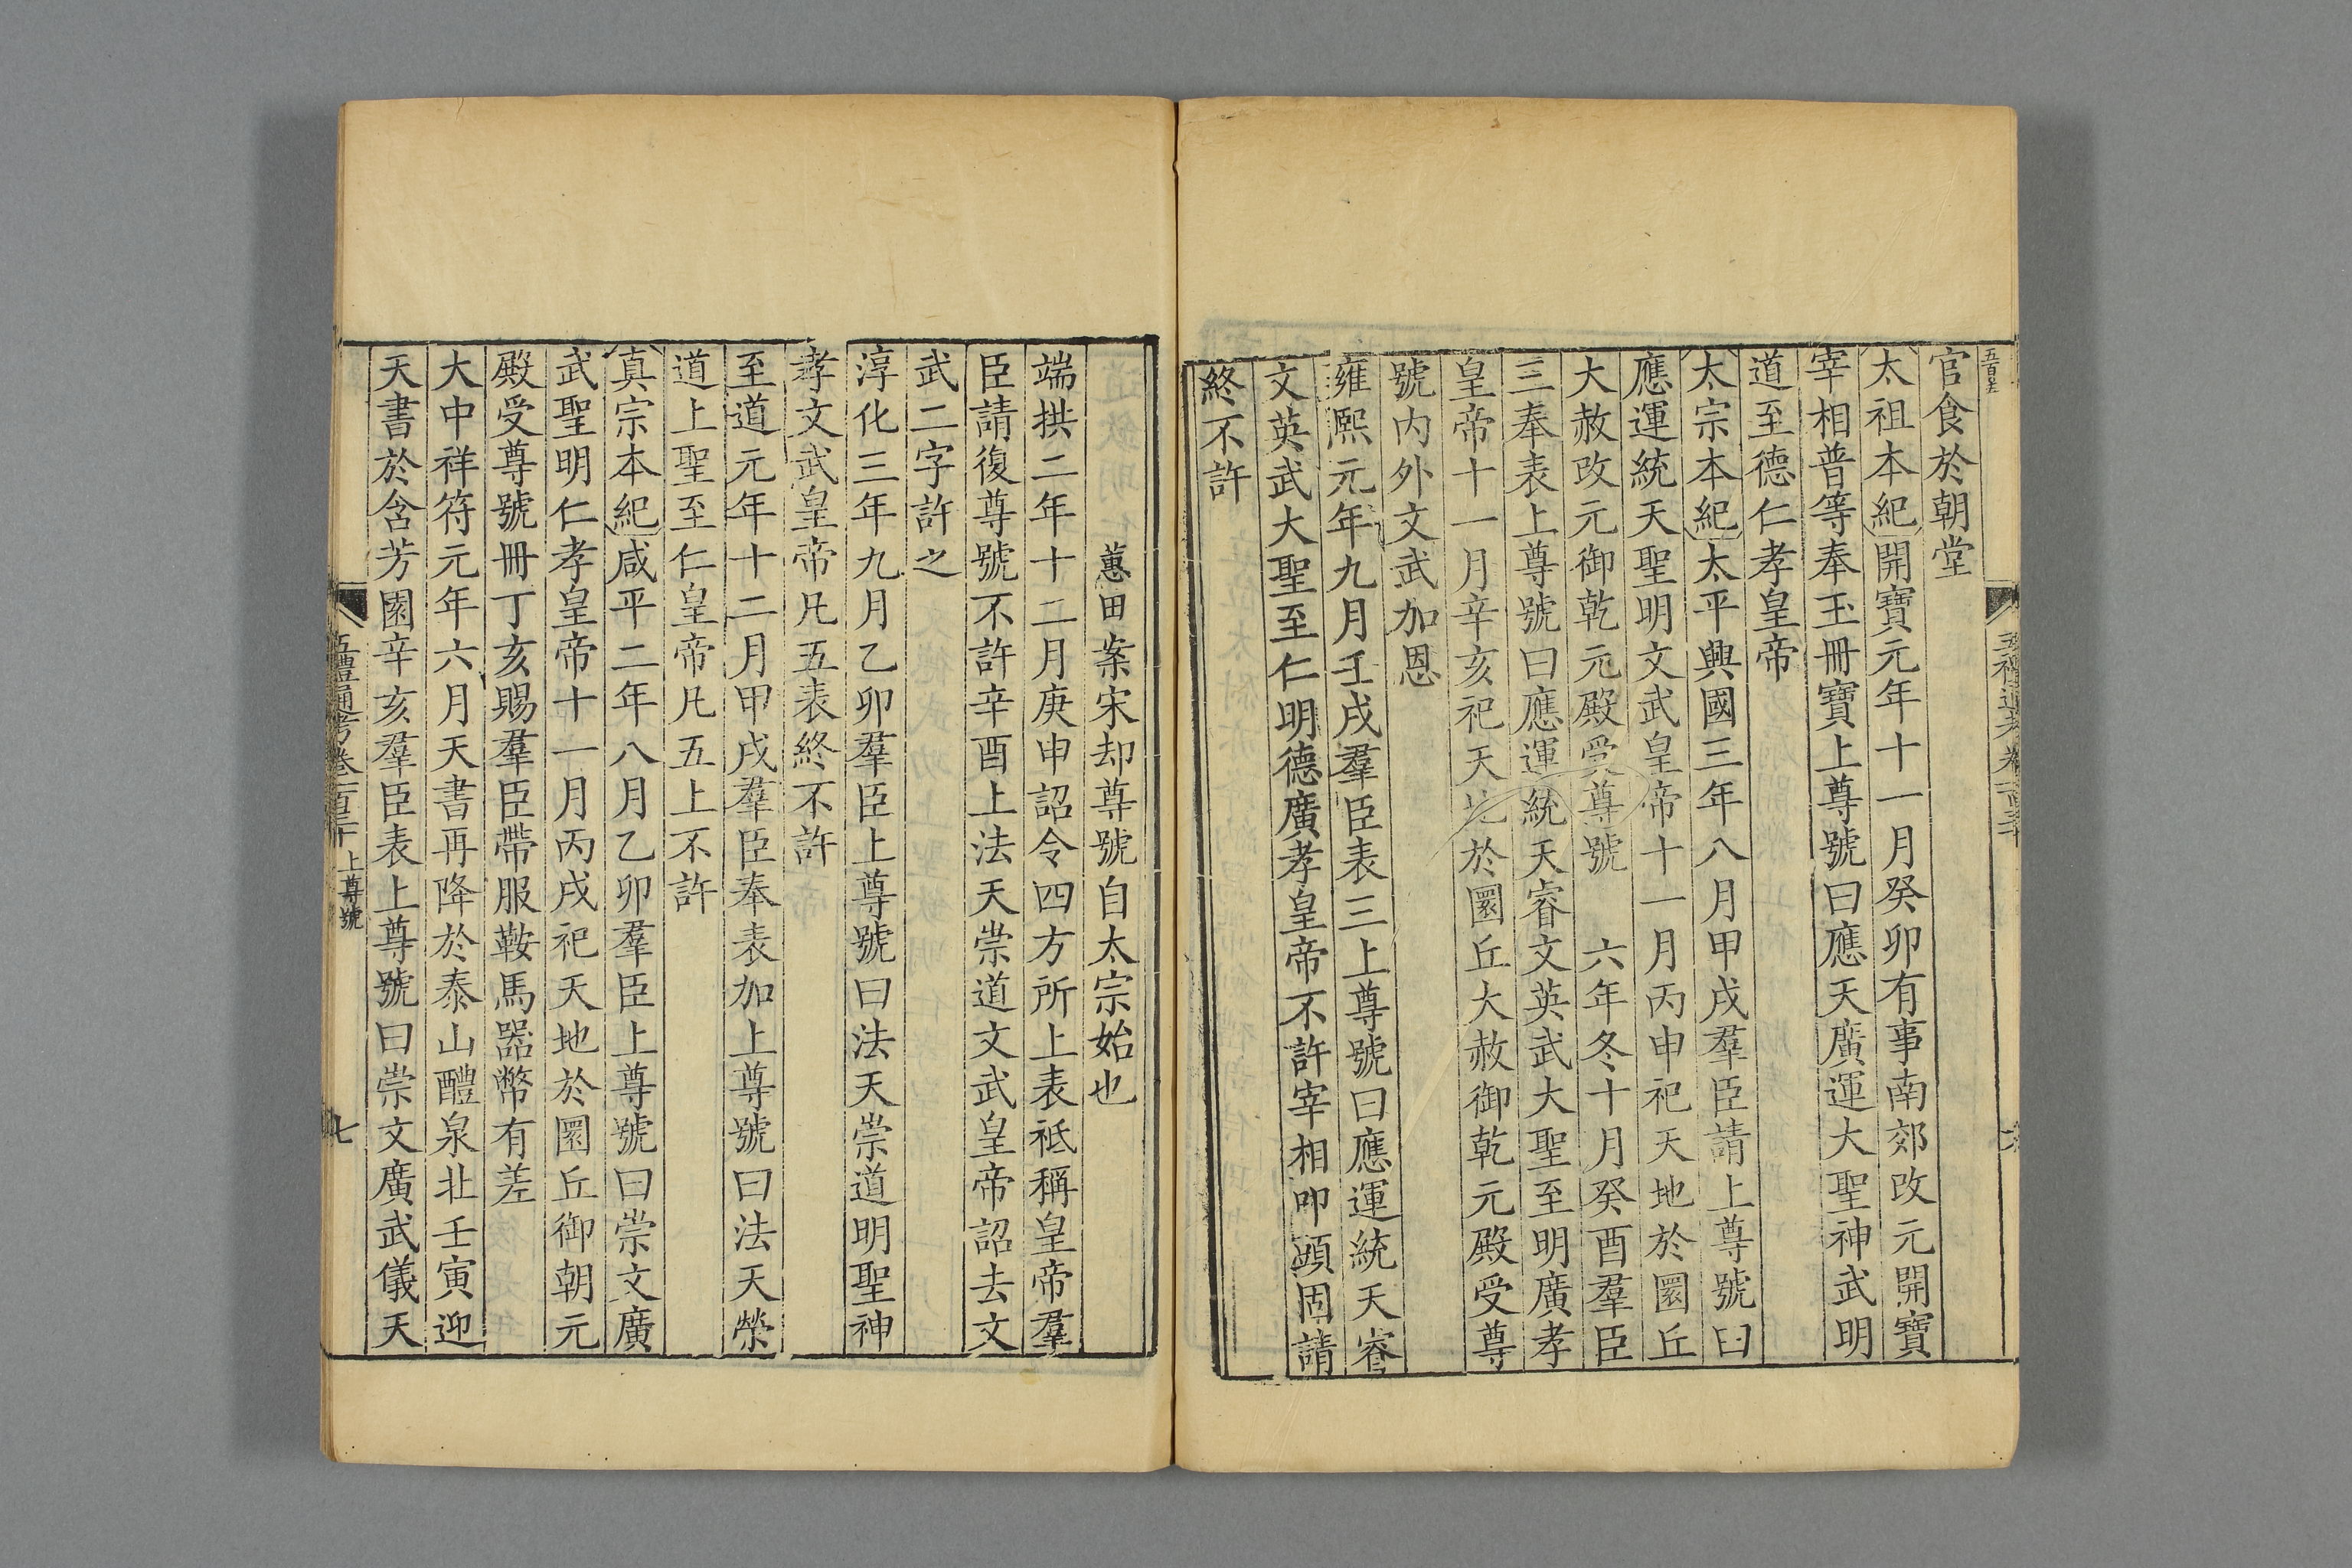 官食於朝堂
太祖本紀開寶元年十一月癸卯有事南郊改元開寶
宰相普等奉玉冊寶上尊號曰應天廣運大聖神武明
道至德仁孝皇帝
太宗本紀太平興國三年八月甲戌羣臣請上尊號曰
應運統天聖明文武皇帝十一月丙申祀天地於圜丘
大赦改元御乾元殿受尊號 六年冬十月癸酉羣臣
三奉表上尊號曰應運統天睿文英武大聖至明廣孝
皇帝十一月辛亥祀天地於圜丘大赦御乾元殿受尊
號内外文武加恩
雍熙元年九月壬戌羣臣表三上尊號曰應運統天睿
文英武大聖至仁明德廣孝皇帝不許宰相叩頭固請
終不許
蕙田案宋却尊號自太宗始也
端拱二年十二月庚申詔令四方所上表祗稱皇帝羣
臣請復尊號不許辛酉上法天崇道文武皇帝詔去文
武二字許之
淳化三年九月乙卯羣臣上尊號曰法天崇道明聖神
孝文武皇帝凡五表終不許
至道元年十二月甲戌羣臣奉表加上尊號曰法天崇
道上聖至仁皇帝凡五上不許
真宗本紀咸平二年八月乙卯羣臣上尊號曰崇文廣
武聖明仁孝皇帝十一月丙戌祀天地於圜丘御朝元
殿受尊號冊丁亥賜羣臣帶服鞍馬器幣有差
大中祥符元年六月天書再降於泰山醴泉北壬寅迎
天書於含芳園辛亥羣臣表上尊號曰崇文廣武儀天
五禮通考卷一百三十 上尊號
七